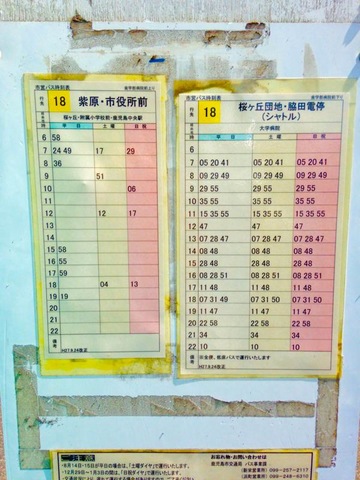 市営バス時刻表
歯学部病院前より
行先 18 紫原・市役所前
桜ヶ丘・附属小学校前・鹿児島中央駅
平日 土曜 日祝
6 58
7 24 49 17 29
8 36
9 51
10 06
11
12 12 17
13
14
15 58
16 55
17 59
18 04 13
19 19
20
21
22
備考 H27.9.24改正
市営バス時刻表
歯学部病院前下り
行先 18 桜ヶ丘団地・脇田電停
(シャトル)
大学病院
平日 土曜 日祝
6
7 05 20 41 05 20 41 05 20 41
8 05 20 41 05 20 41 05 20 41
9 29 55 29 55 29 55
10 35 55 35 55 35 55
11 15 35 55 15 35 55 15 35 55
12 47 47 47
13 07 28 47 07 28 47 07 28 47
14 08 28 08 28 08 28
15 28 48 28 48 28 48
16 08 28 51 08 28 51 08 28 51
17 11 48 11 48 11 48
18 07 31 49 07 31 50 07 31 50
19 11 47 11 47 11 47
20 22 58 22 58 22 58
21 34 34 34
22 10 10 10
備考 H27.9.24改正
ご注意
・8月14日・15日が平日の場合は、「土曜ダイヤ」で運行いたします。
・12月29日~1月3日の間は、「日祝ダイヤ」で運行いたします。
お忘れ物・お問い合わせは
鹿児島市交通局 バス事業課
099-257-2117
099-248-6310